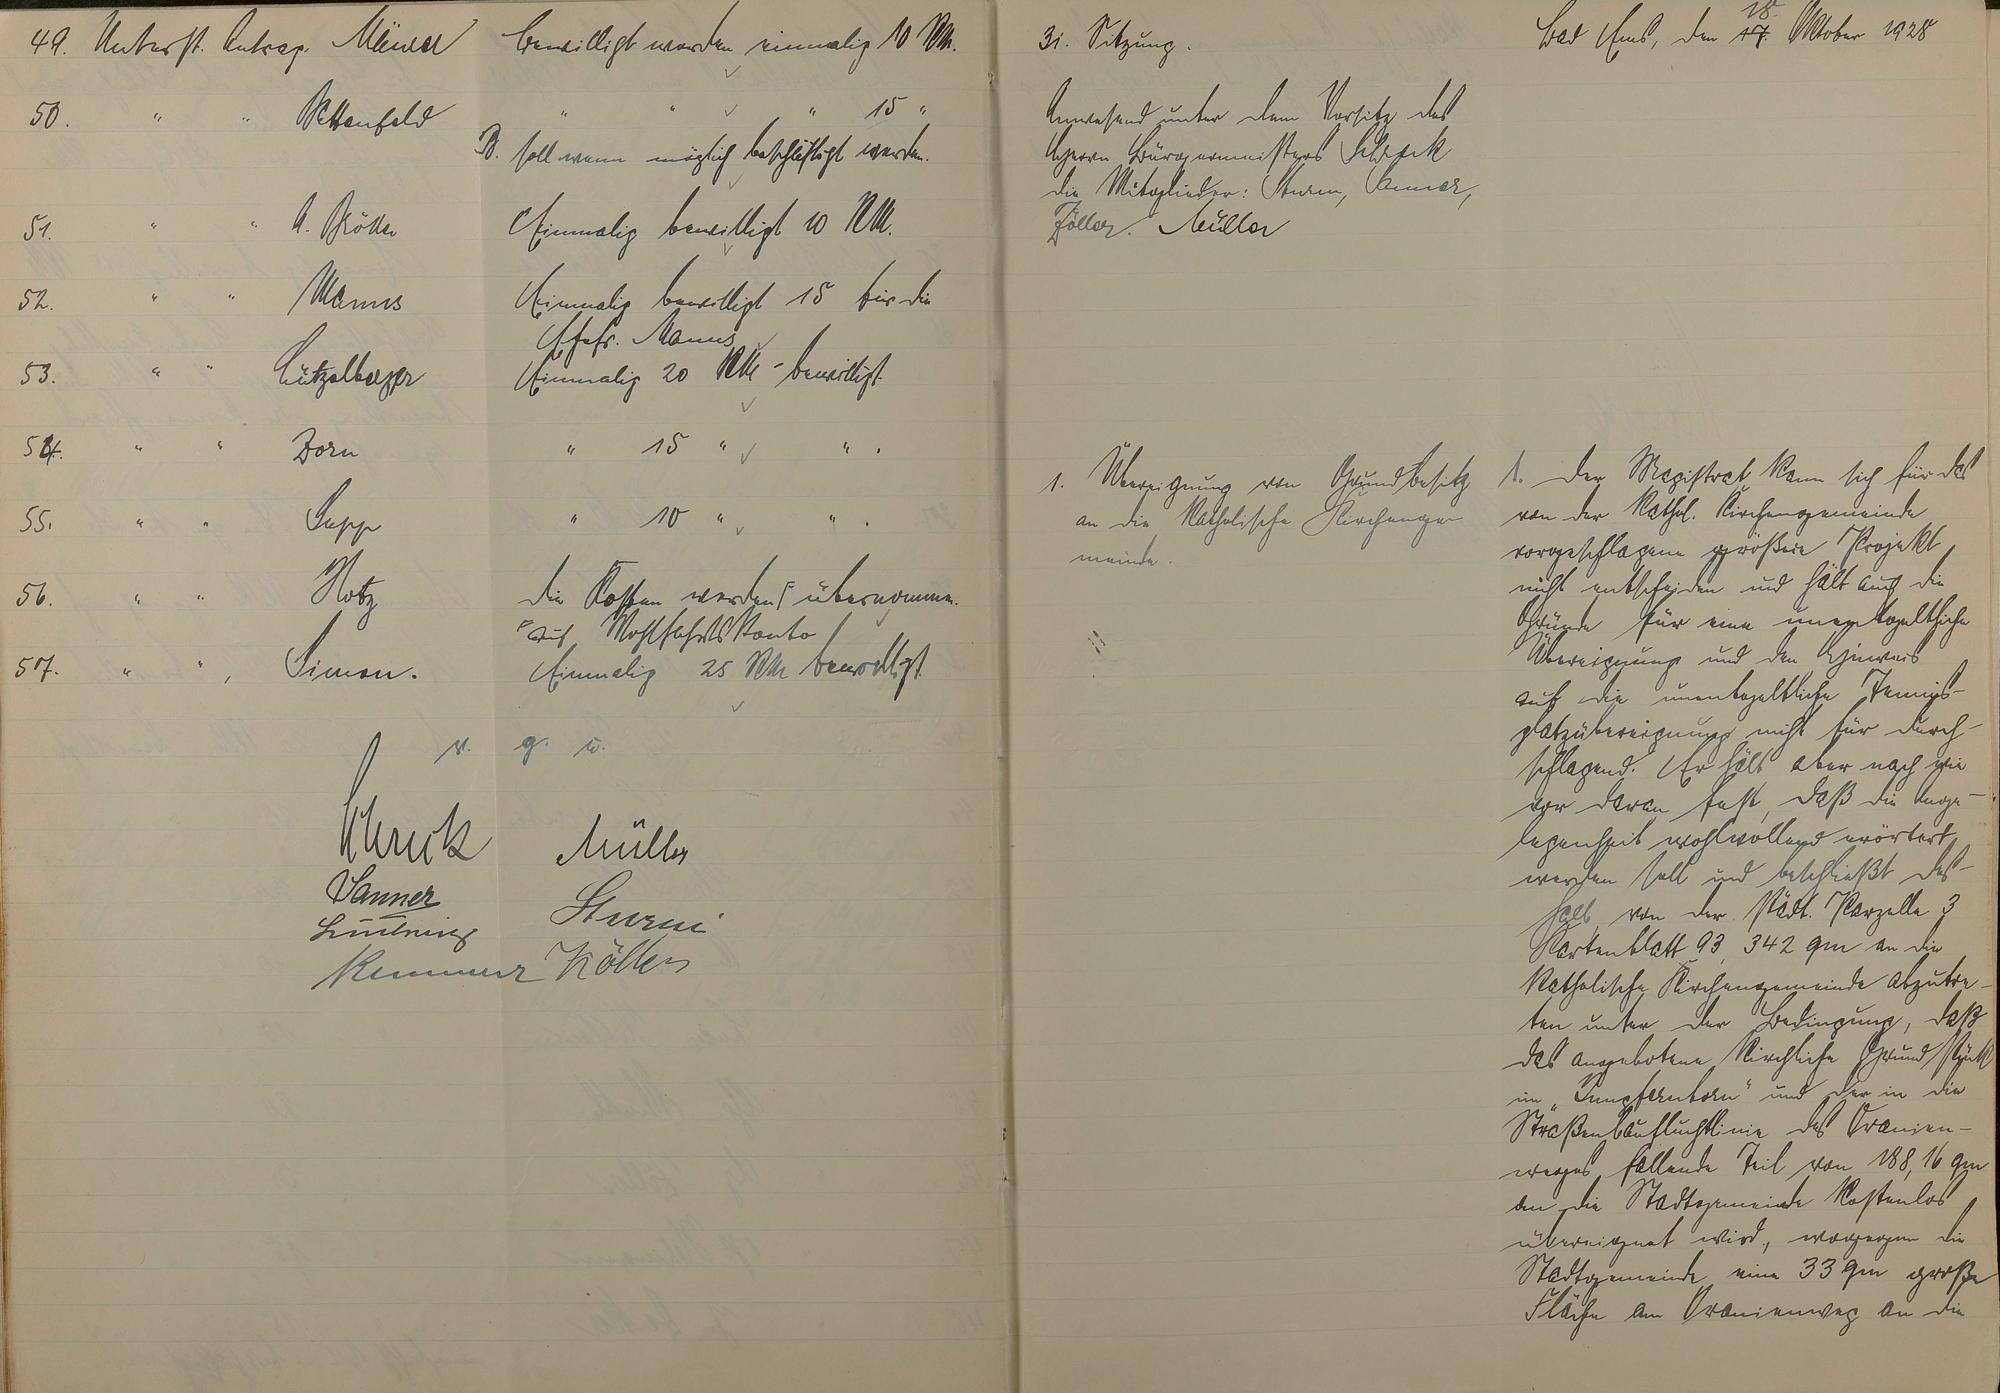 49. Unterst. Antrag Meurer bewilligt werden einmalig 10 RM.
50. " " Bettenfeld " " " 15 "
B. soll wenn möglich beschäftigt werden.
51. " " A. Bröder Einmalig bewilligt 10 RM.
52. " " Manns Einmalig bewilligt 15 für die
Ehefr. Manns
53. " " Lützelberger Einmalig 20 RM - bewilligt.
54. " " Zorn " 15 " " .
55. " " Sapp " 10 " " .
56. " " Hotz die Kosten werden ⌈ übernommen.
⌈ auf Wohlfahrtskonto
57. " " , Simon. Einmalig 25 RM bewilligt.
v. g. u.
Schreck Müller
Sanner Sturm
Kemmerer Zöller
31. Sitzung. Bad Ems, den 17. 18. Oktober 1928
Anwesend unter dem Vorsitz des
Herrn Bürgermeisters Schreck
die Mitglieder: Sturm, Sanner,
Zöller. Müller
1. Übereignung von Grundbesitz
an die katholische Kirchenge-
meinde.
1. Der Magistrat kann sich für das
von der kathol. Kirchengemeinde
vorgeschlagene größere Projekt
nicht entscheiden und hält auch die
Gründe für eine unentgeltliche
Übereignung und den Hinweis
auf die unentgeltliche Tennis-
platzübereignung nicht für durch-
schlagend. Er hält aber nach wie
vor daran fest, daß die Ange-
legenheit wohlwollend erörtert
werden soll und beschließt des-
halb, von der städt. Parzelle 3
Kartenblatt 93, 342 qm an die
katholische Kirchengemeinde abzutre-
ten unter der Bedingung, daß
das angebotene kirchliche Grundstück
im „ " und der in die
Straßenbaufluchtlinie des Oranien-
weges fallende Teil von 188,16 qm
an die Stadtgemeinde kostenlos
übereignet wird, wogegen die
Stadtgemeinde eine 33 qm große
Fläche am Oranienweg an die